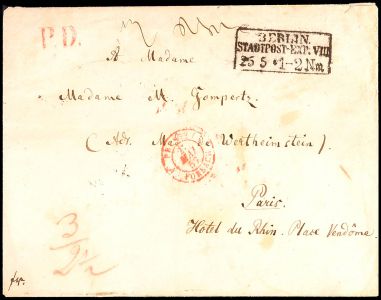 P.D.
BERLIN.
STADTPOST-EXP. VIII
25 5 1-2 Nm
A Madame
Madame M. Gompertz
(Adr. Mad. de Wertheimstein).
Paris.
Hotel du Rhin. Place Vendôme.
3
fr.